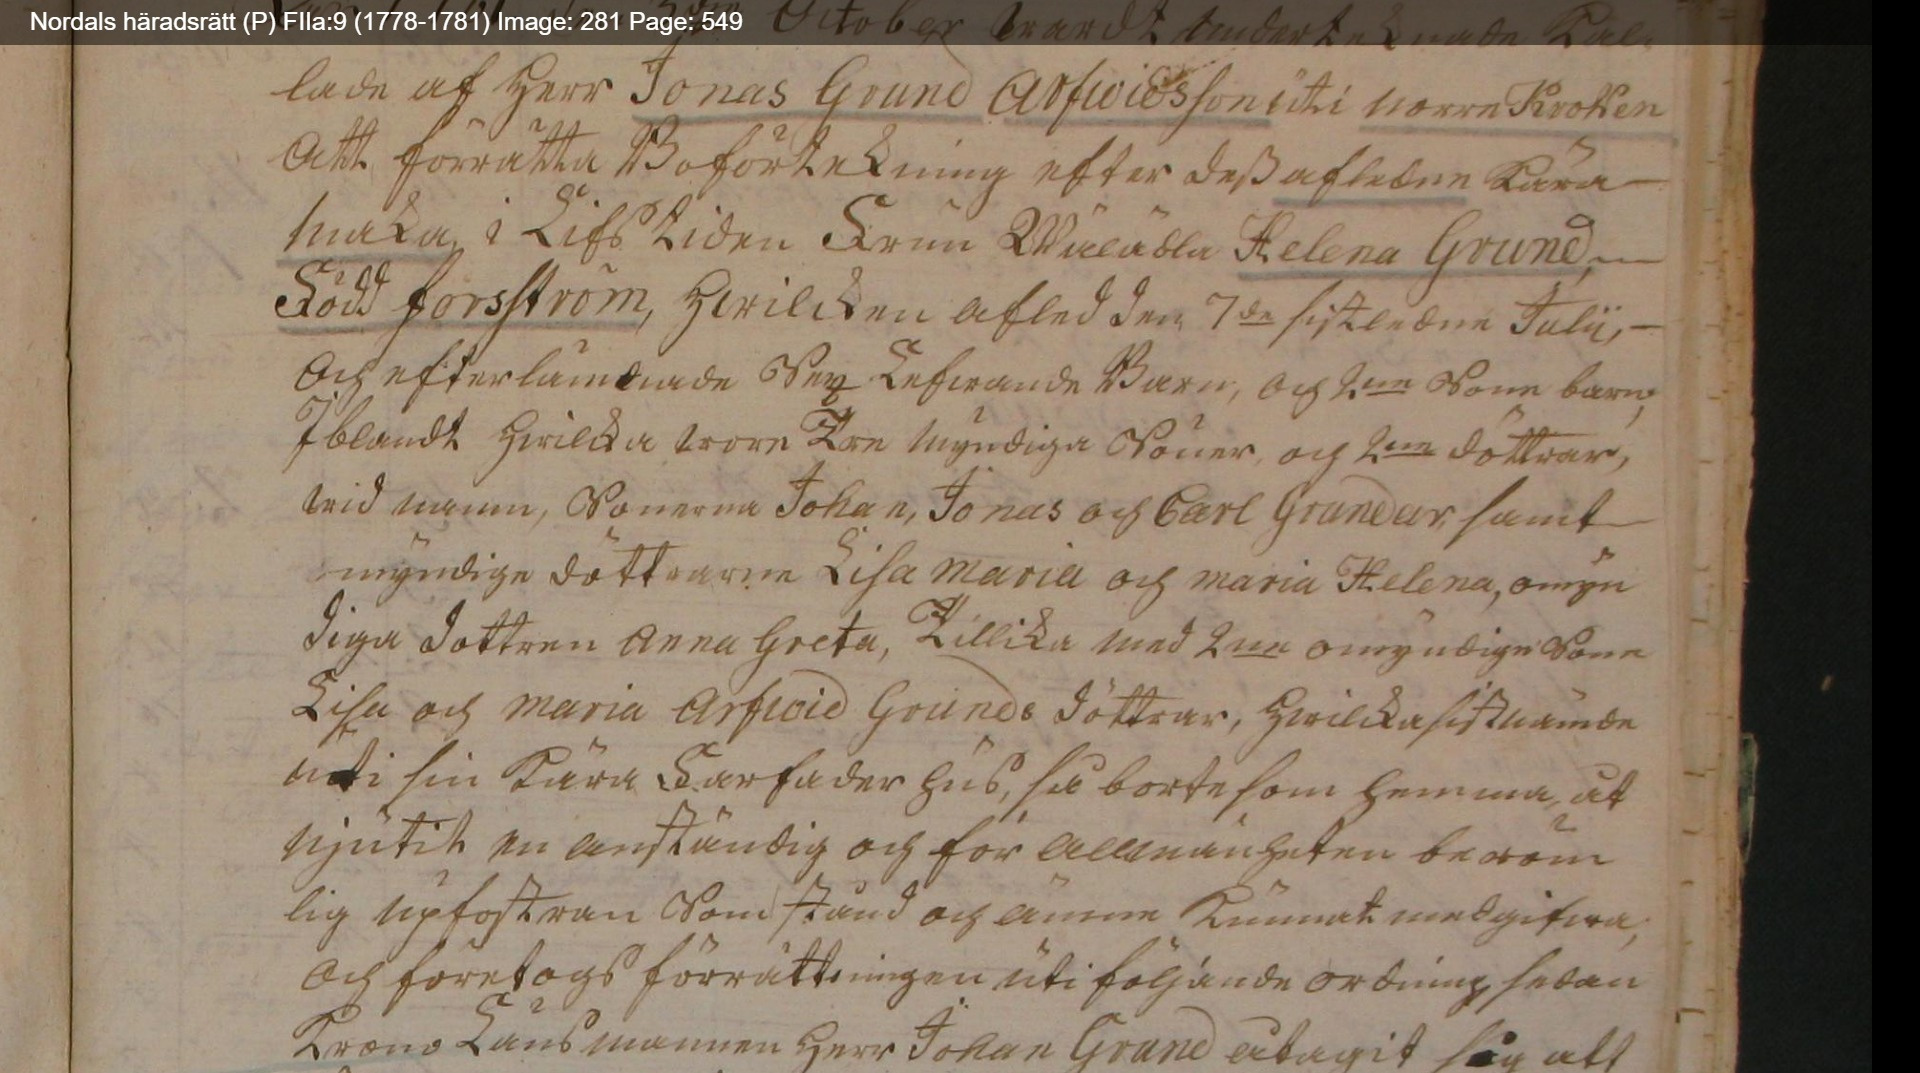 Nordals häradsrätt (P) FIIa:9 (1778-1781) Image: 281 Page: 549
October wardt undertecknade Kal-
lade af Herr Jonas Grund Arfwidsson uti norre Kroken
Att förrätta Boförtekning efter deß afledne Kära
maka, i Lifstiden Frun Wälädla Helena Grund,
Född forsström, Hwilcken afled den 7de sistledne Julii,
och efterlämnade Sex Lefwande Barn, och 2ne Sone barn,
Iblandt Hwilcka wore Tre myndiga Söner, och 2ne döttrar,
wid namn, Sönerna Johan, Jonas och Carl Grunder, samt
myndige döttrarne Lisa Maria och Maria Helena, omyn
diga dottren Anna Greta, Tillika med 2ne omyndige Sone
Lisa och Maria Arfwid Grunds döttrar, Hwilcka sistnämde
uti sin Kära Farfader hus, så borte som hemma, åt
njutit en anständig och för allmänheten beröm
lig upfostran Som stånd och ämne Kunnat medgifwa,
och företogs förrättningen uti följande ordning, sedan
Krono Länsmannen Herr Johan Grund åtagit sig att